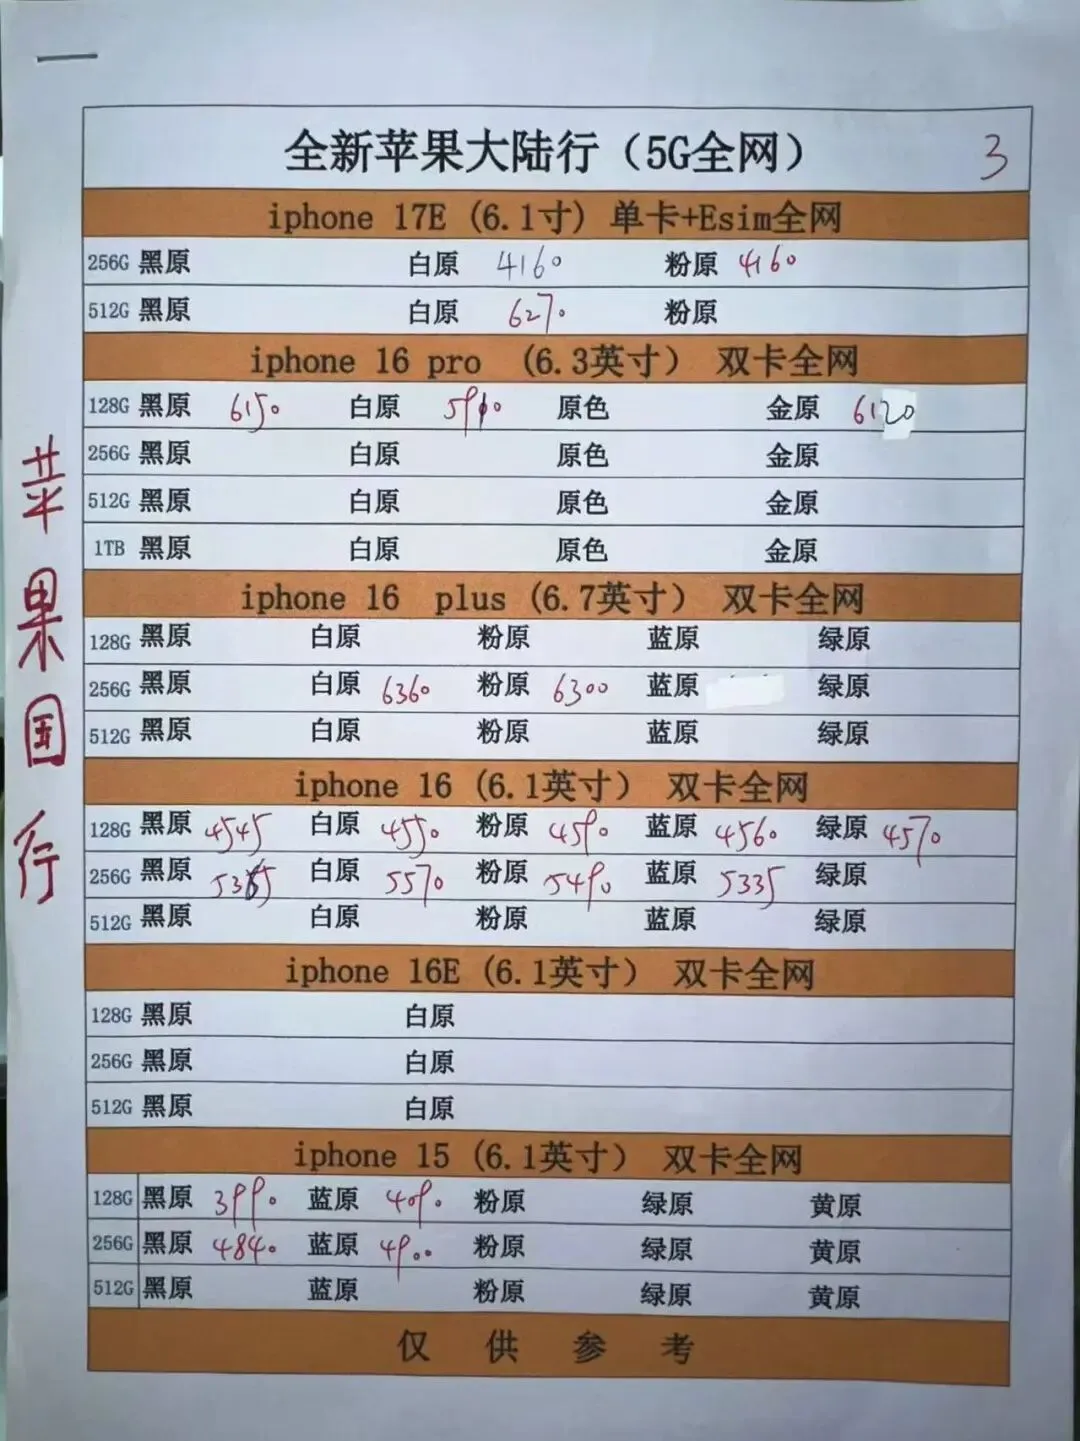 全新苹果大陆行（5G全网） 3
iphone 17E (6.1寸) 单卡+Esim全网
256G 黑原 白原 4160 粉原 4160
512G 黑原 白原 6270 粉原
iphone 16 pro (6.3英寸) 双卡全网
128G 黑原 6150 白原 原色 金原 6120
256G 黑原 白原 原色 金原
512G 黑原 白原 原色 金原
1TB 黑原 白原 原色 金原
iphone 16 plus (6.7英寸) 双卡全网
128G 黑原 白原 粉原 蓝原 绿原
256G 黑原 白原 6360 粉原 6300 蓝原 绿原
512G 黑原 白原 粉原 蓝原 绿原
iphone 16 (6.1英寸) 双卡全网
128G 黑原 4545 白原 4550 粉原 4590 蓝原 4560 绿原 4570
256G 黑原 白原 5570 粉原 5490 蓝原 5335 绿原
512G 黑原 白原 粉原 蓝原 绿原
iphone 16E (6.1英寸) 双卡全网
128G 黑原 白原
256G 黑原 白原
512G 黑原 白原
iphone 15 (6.1英寸) 双卡全网
128G 黑原 3990 蓝原 4090 粉原 绿原 黄原
256G 黑原 4840 蓝原 4900 粉原 绿原 黄原
512G 黑原 蓝原 粉原 绿原 黄原
仅供参考
苹果国行